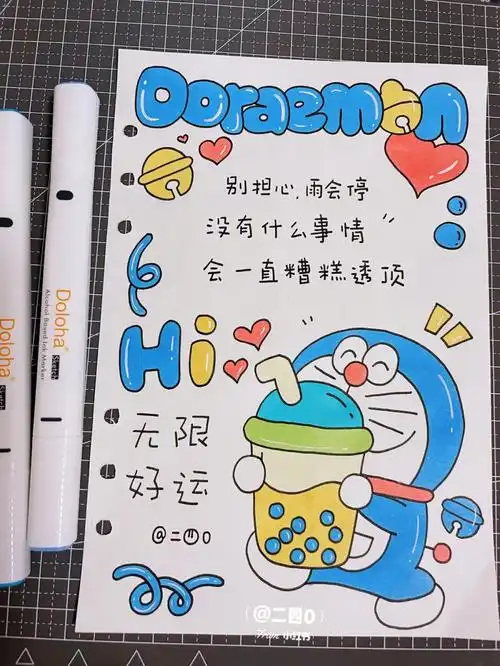 Doraemon
别担心,雨会停
没有什么事情"
会一直糟糕透顶
Hi
无限
好运
@二四0
Doloha Sketch
Alcohol Based Ink Marker
Doloha Sketch
@二四0
From 小红书